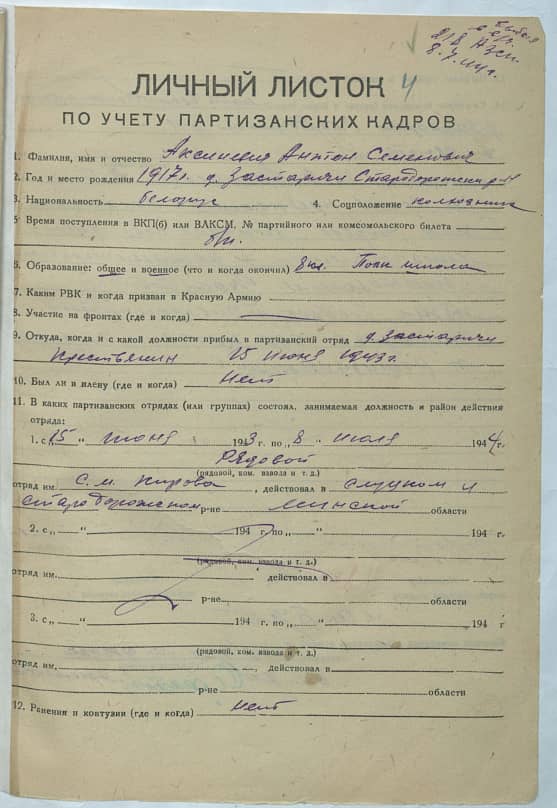 8.7.44г.
ЛИЧНЫЙ ЛИСТОК 4
ПО УЧЕТУ ПАРТИЗАНСКИХ КАДРОВ
1. Фамилия, имя и отчество Антон Семенович
2. Год и место рождения 1917г. д. Застаричи Стародорожский р-н
3. Национальность белорус 4. Соцположение колхозник
5 Время поступления в ВКП(б) или ВЛКСМ, № партийного или комсомольского билета
б/п.
6. Образование: общее и военное (что и когда окончил) 8 кл. Полк школа
7. Каким РВК и когда призван в Красную Армию
8. Участие на фронтах (где и когда)
9. Откуда, когда и с какой должности прибыл в партизанский отряд д. Застаричи
крестьянин 15 июня 1943г.
10. Был ли в плену (где и когда) Нет
11. В каких партизанских отрядах (или группах) состоял, занимаемая должность и район действия
отряда:
1. с „15 " июня 1943 г. по „8 " июля 1944 г.
Рядовой
(рядовой, ком. взвода и т. д.)
отряд им. С. М. Кирова, действовал в Слуцком и
Стародорожском р-не Минской области
2. с „ " 194 г. по „ " 194 г.
(рядовой, ком. взвода и т. д.)
отряд им. действовал в
р-не области
3. с „ " 194 г. по „ " 194 г
(рядовой, ком. взвода и т. д.)
отряд им. , действовал в
р-не области
12. Ранения и контузии (где и когда) Нет